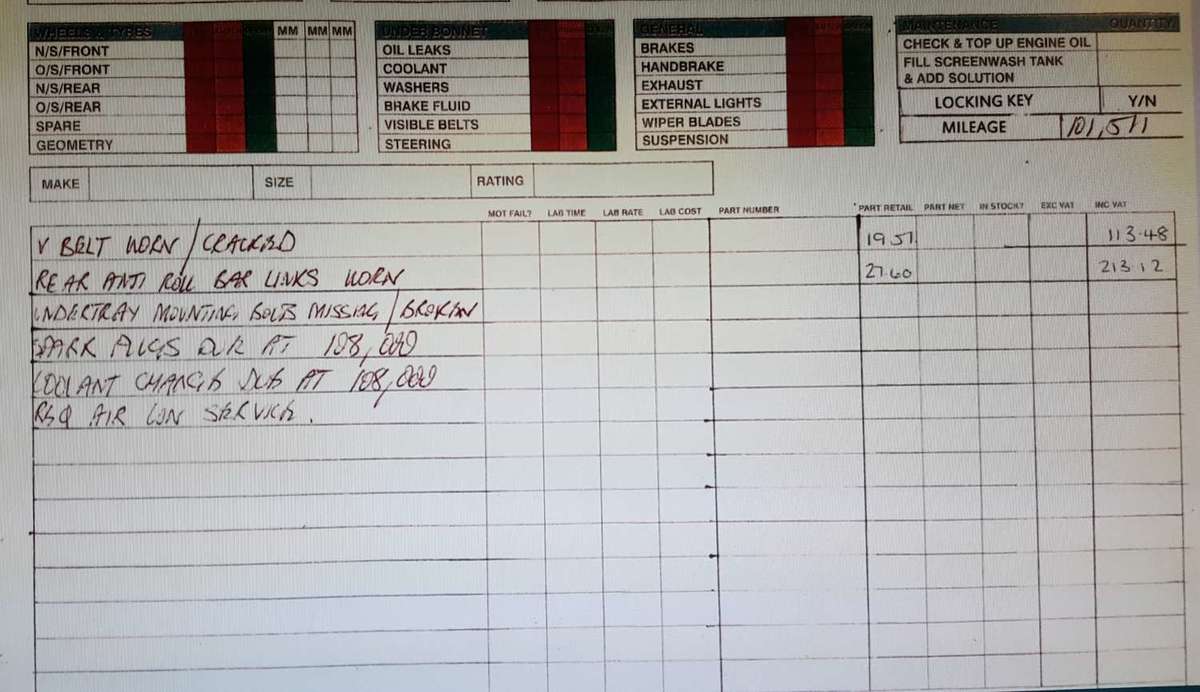 WHEELS & TYRES MM MM MM
N/S/FRONT
O/S/FRONT
N/S/REAR
O/S/REAR
SPARE
GEOMETRY
UNDER BONNET
OIL LEAKS
COOLANT
WASHERS
BRAKE FLUID
VISIBLE BELTS
STEERING
GENERAL
BRAKES
HANDBRAKE
EXHAUST
EXTERNAL LIGHTS
WIPER BLADES
SUSPENSION
MAINTENANCE QUANTITY
CHECK & TOP UP ENGINE OIL
FILL SCREENWASH TANK
& ADD SOLUTION
LOCKING KEY Y/N
MILEAGE 101,511
MAKE SIZE RATING
MOT FAIL? LAB TIME LAB RATE LAB COST PART NUMBER PART RETAIL PART NET IN STOCK? EXC VAT INC VAT
V BELT WORN / CRACKED 19.57 113.48
REAR ANTI ROLL BAR LINKS WORN 27.60 213.12
UNDERTRAY MOUNTING BOLTS MISSING / BROKEN
SPARK PLUGS DUE AT 108,000
COOLANT CHANGE DUE AT 108,000
REQ AIR CON SERVICE.